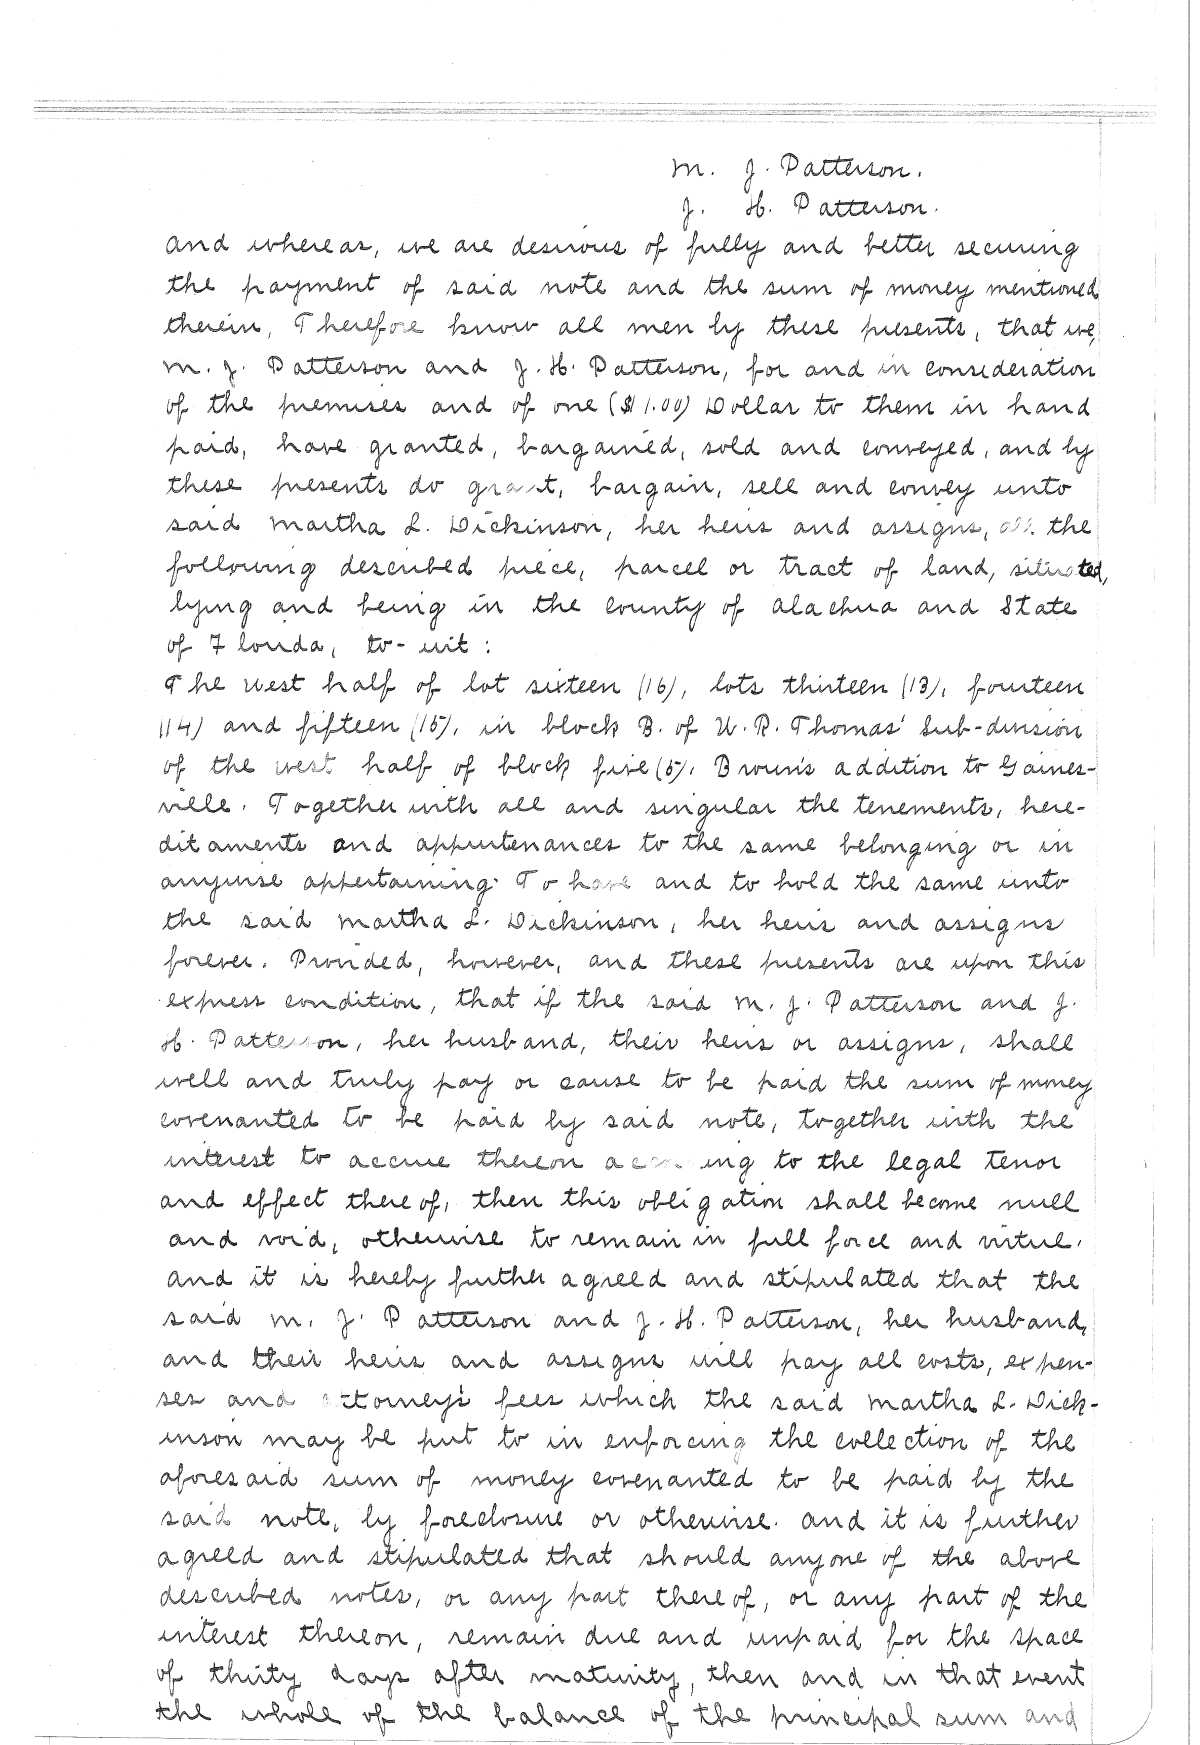 M. J. Patterson.
J. H. Patterson.
and whereas, we are desirous of fully and better securing
the payment of said note and the sum of money mentioned
therein, Therefore know all men by these presents, that we,
M. J. Patterson and J. H. Patterson, for and in consideration
of the premises and of one ($1.00) Dollar to them in hand
paid, have granted, bargained, sold and conveyed, and by
these presents do grant, bargain, sell and convey unto
said Martha L. Dickinson, her heirs and assigns, all the
following described piece, parcel or tract of land, situated,
lying and being in the county of Alachua and State
of Florida, to-wit:
The west half of lot sixteen (16), lots thirteen (13), fourteen
(14) and fifteen (15), in block B. of W. R. Thomas' Sub-division
of the west half of block five (5), Brown's addition to Gaines-
ville. Together with all and singular the tenements, here-
ditaments and appurtenances to the same belonging or in
anywise appertaining. To have and to hold the same unto
the said Martha L. Dickinson, her heirs and assigns
forever. Provided, however, and these presents are upon this
express condition, that if the said M. J. Patterson and J.
H. Patterson, her husband, their heirs or assigns, shall
well and truly pay or cause to be paid the sum of money
covenanted to be paid by said note, together with the
interest to accrue thereon according to the legal tenor
and effect thereof, then this obligation shall become null
and void, otherwise to remain in full force and virtue.
And it is hereby further agreed and stipulated that the
said M. J. Patterson and J. H. Patterson, her husband,
and their heirs and assigns will pay all costs, expen-
ses and attorney's fees which the said Martha L. Dick-
inson may be put to in enforcing the collection of the
aforesaid sum of money covenanted to be paid by the
said note, by foreclosure or otherwise. And it is further
agreed and stipulated that should anyone of the above
described notes, or any part thereof, or any part of the
interest thereon, remain due and unpaid for the space
of thirty days after maturity, then and in that event
the whole of the balance of the principal sum and